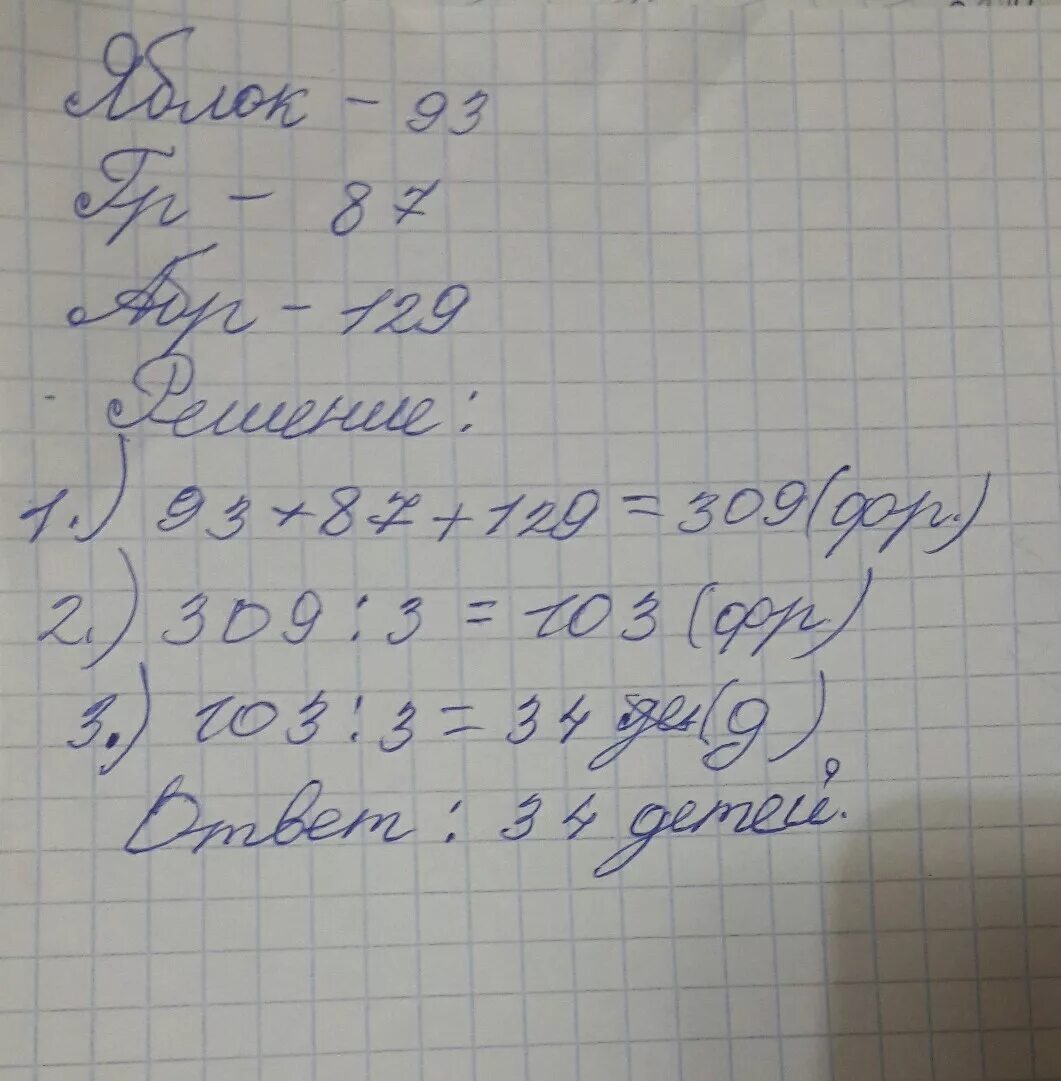 Яблок - 93
Гр - 87
Абр - 129
Решение:
1.) 93+87+129=309(фр.)
2.) 309:3=103(фр.)
3.) 103:3=34 (д)
Ответ: 34 детей.